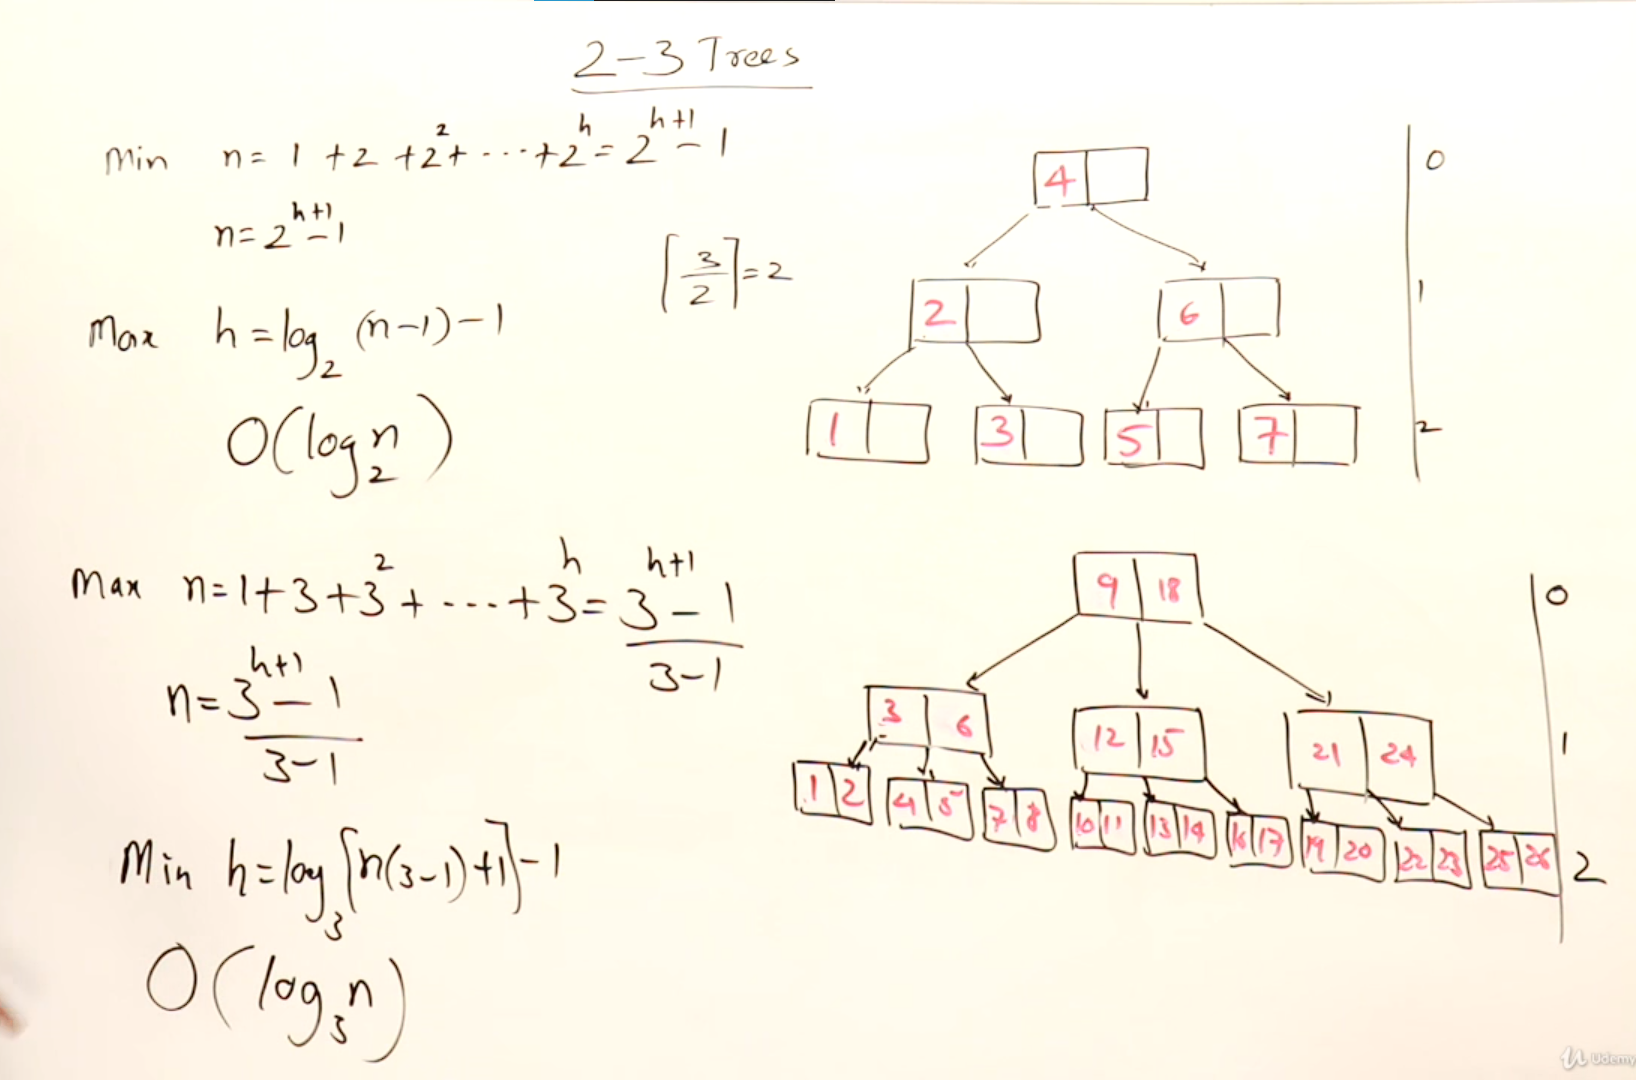 2-3 Trees
Min n = 1 + 2 + 2² + ··· + 2^h = 2^(h+1) - 1
n = 2^(h+1) - 1
⌈3/2⌉ = 2
Max h = log₂ (n-1) - 1
O(log₂ n)
4
2 6
1 3 5 7
0
1
2
Max n = 1 + 3 + 3² + ··· + 3^h = (3^(h+1) - 1)/(3-1)
n = (3^(h+1) - 1)/(3-1)
Min h = log₃ [n(3-1)+1] - 1
O(log₃ n)
9 18
3 6 12 15 21 24
1 2 4 5 7 8 10 11 13 14 16 17 19 20 22 23 25 26
0
1
2
Udemy